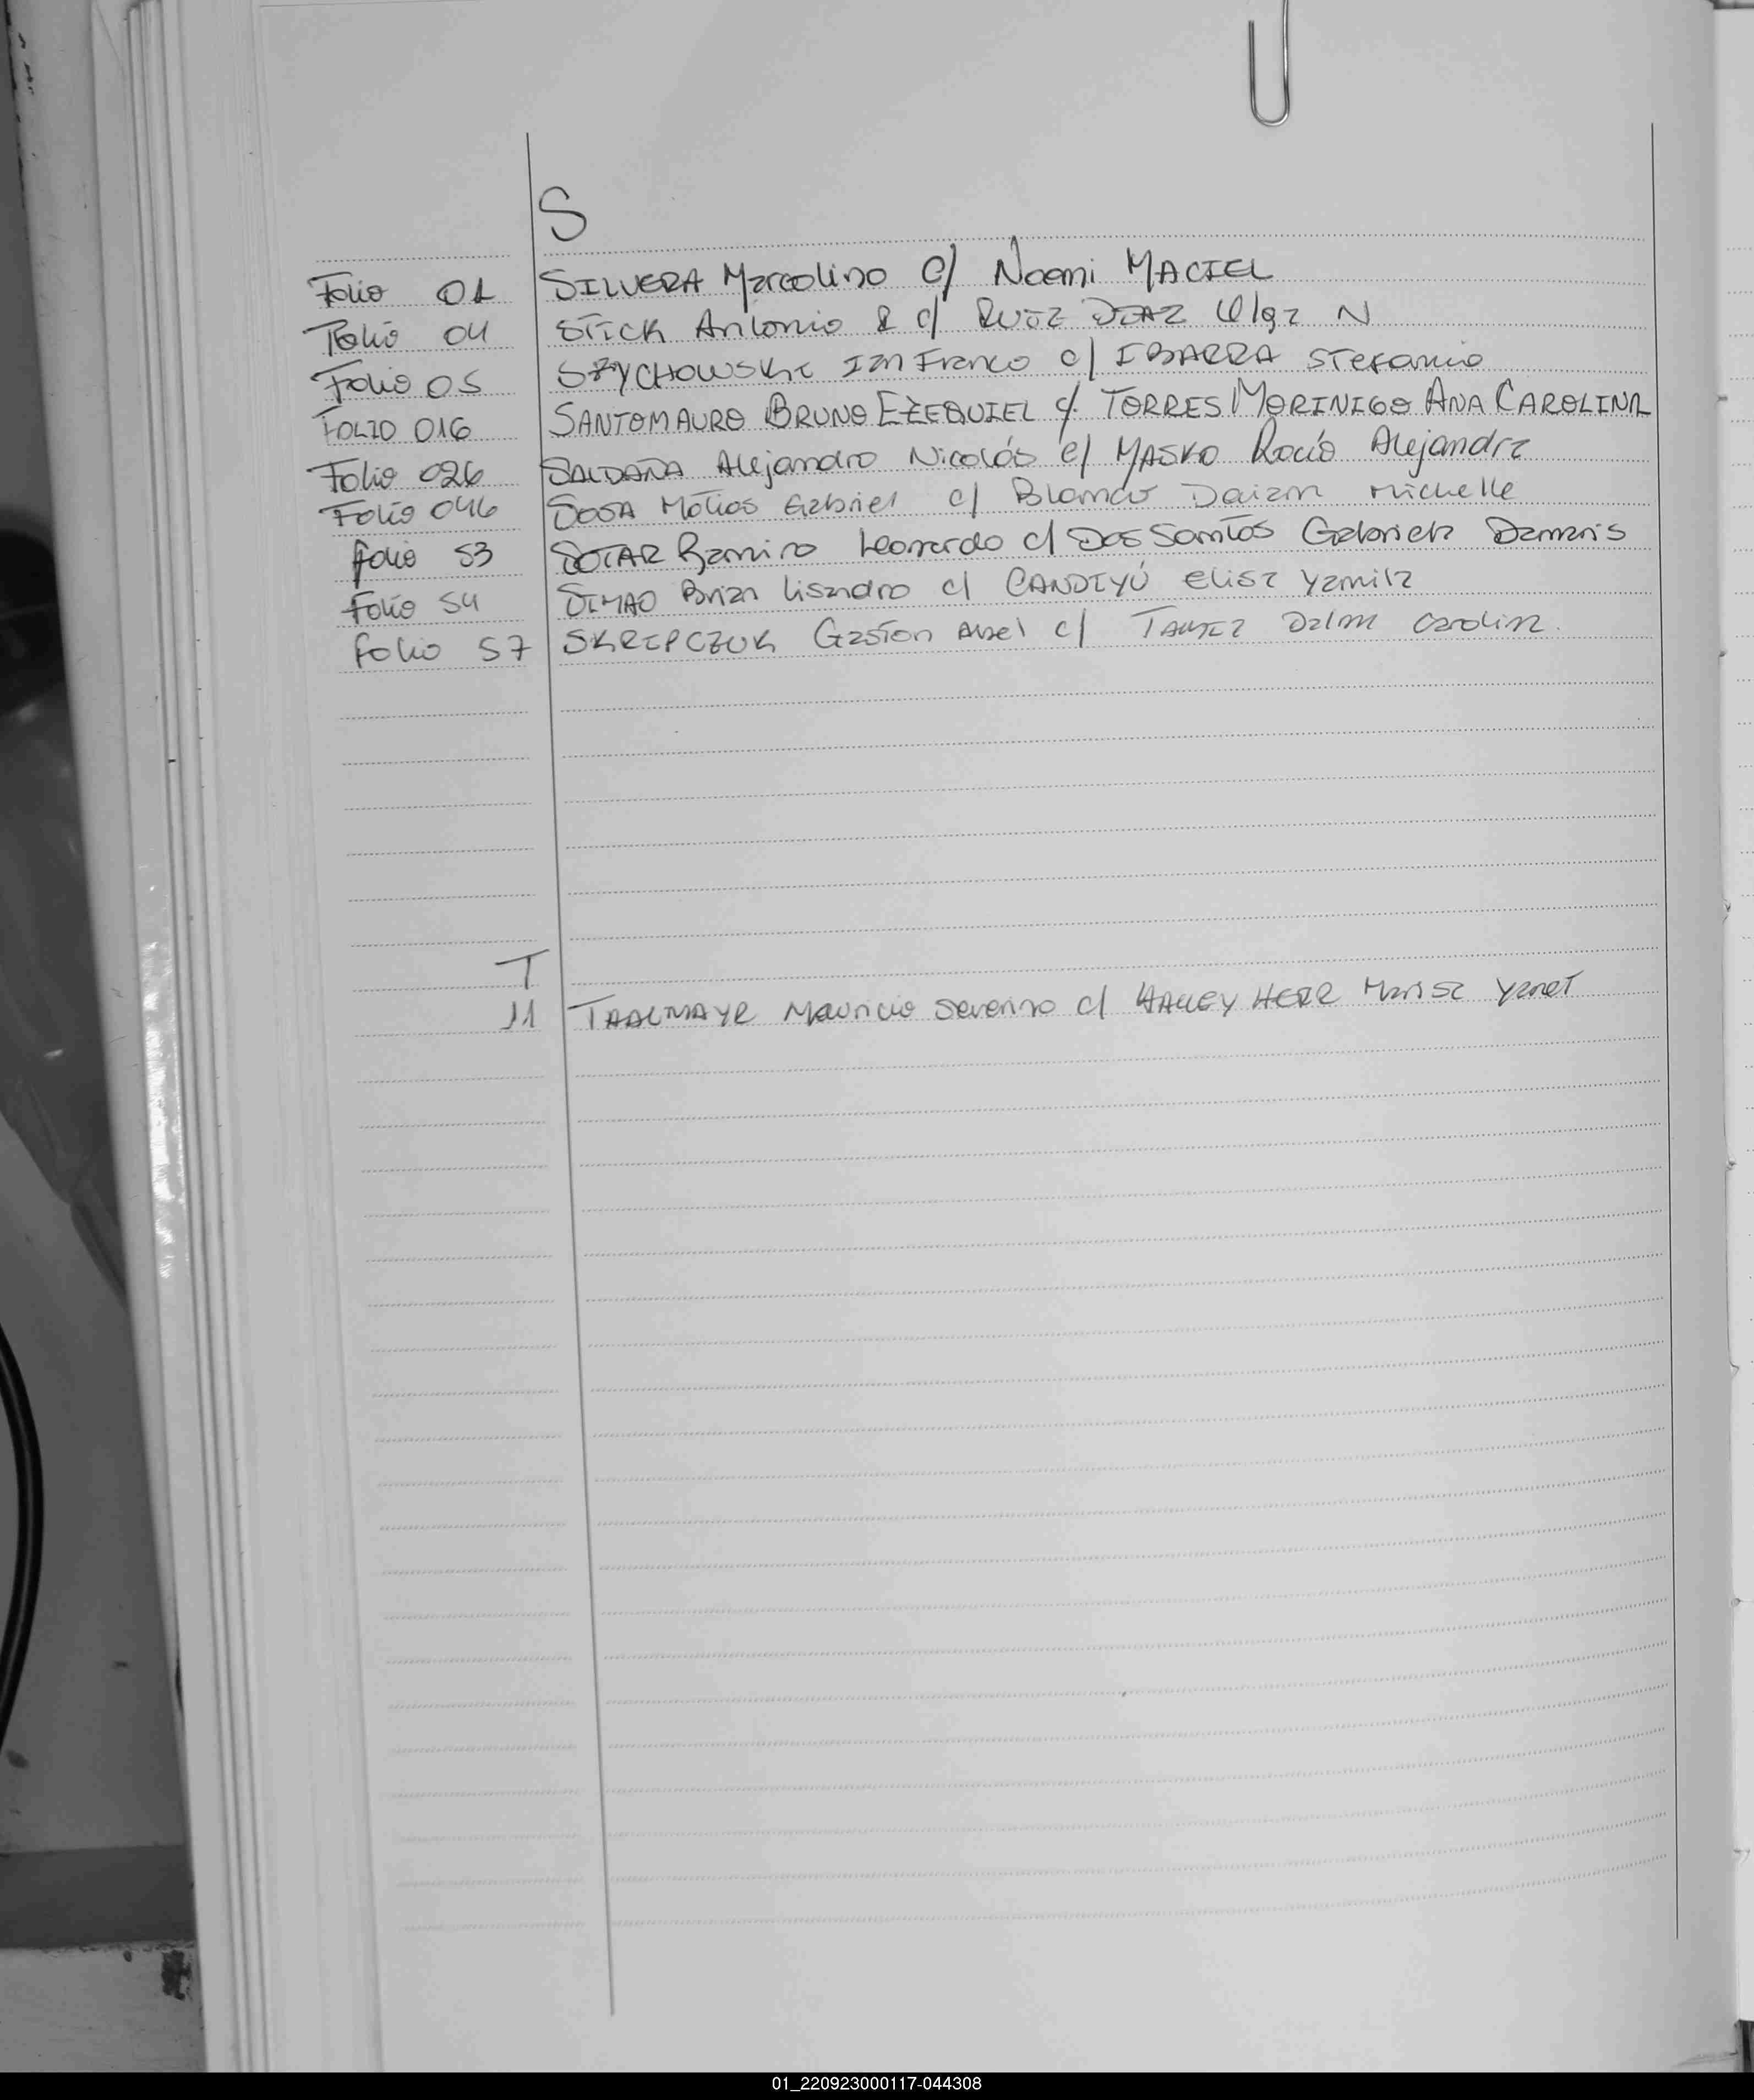 S
Folio 01 SILVERA Marcolino c/ Noemi MACIEL
Folio 04 STICK Antonio R c/ RUIZ DIAZ Olga N
Folio 05 SZYCHOWSKI Ian Franco c/ IBARRA Stefania
FOLIO 016 SANTOMAURO BRUNO EZEQUIEL c/. TORRES MORINIGO ANA CAROLINA
Folio 026 SALDAÑA Alejandro Nicolás c/ MASKO Rocío Alejandra
Folio 046 SOSA Matias Gabriel c/ Blanco Daiam Michelle
folio 53 SOTAR Ramiro Leonardo c/ Dos Santos Gabriela Damaris
Folio 54 SIMAO Brian Lisandro c/ CANDIYÚ Elisa Yamila
folio 57 SKREPCZUK Gaston Abel c/ Dalm Carolina.
T
11 Mauricio Severino c/ HERR Marisa Yanet
01_220923000117-044308